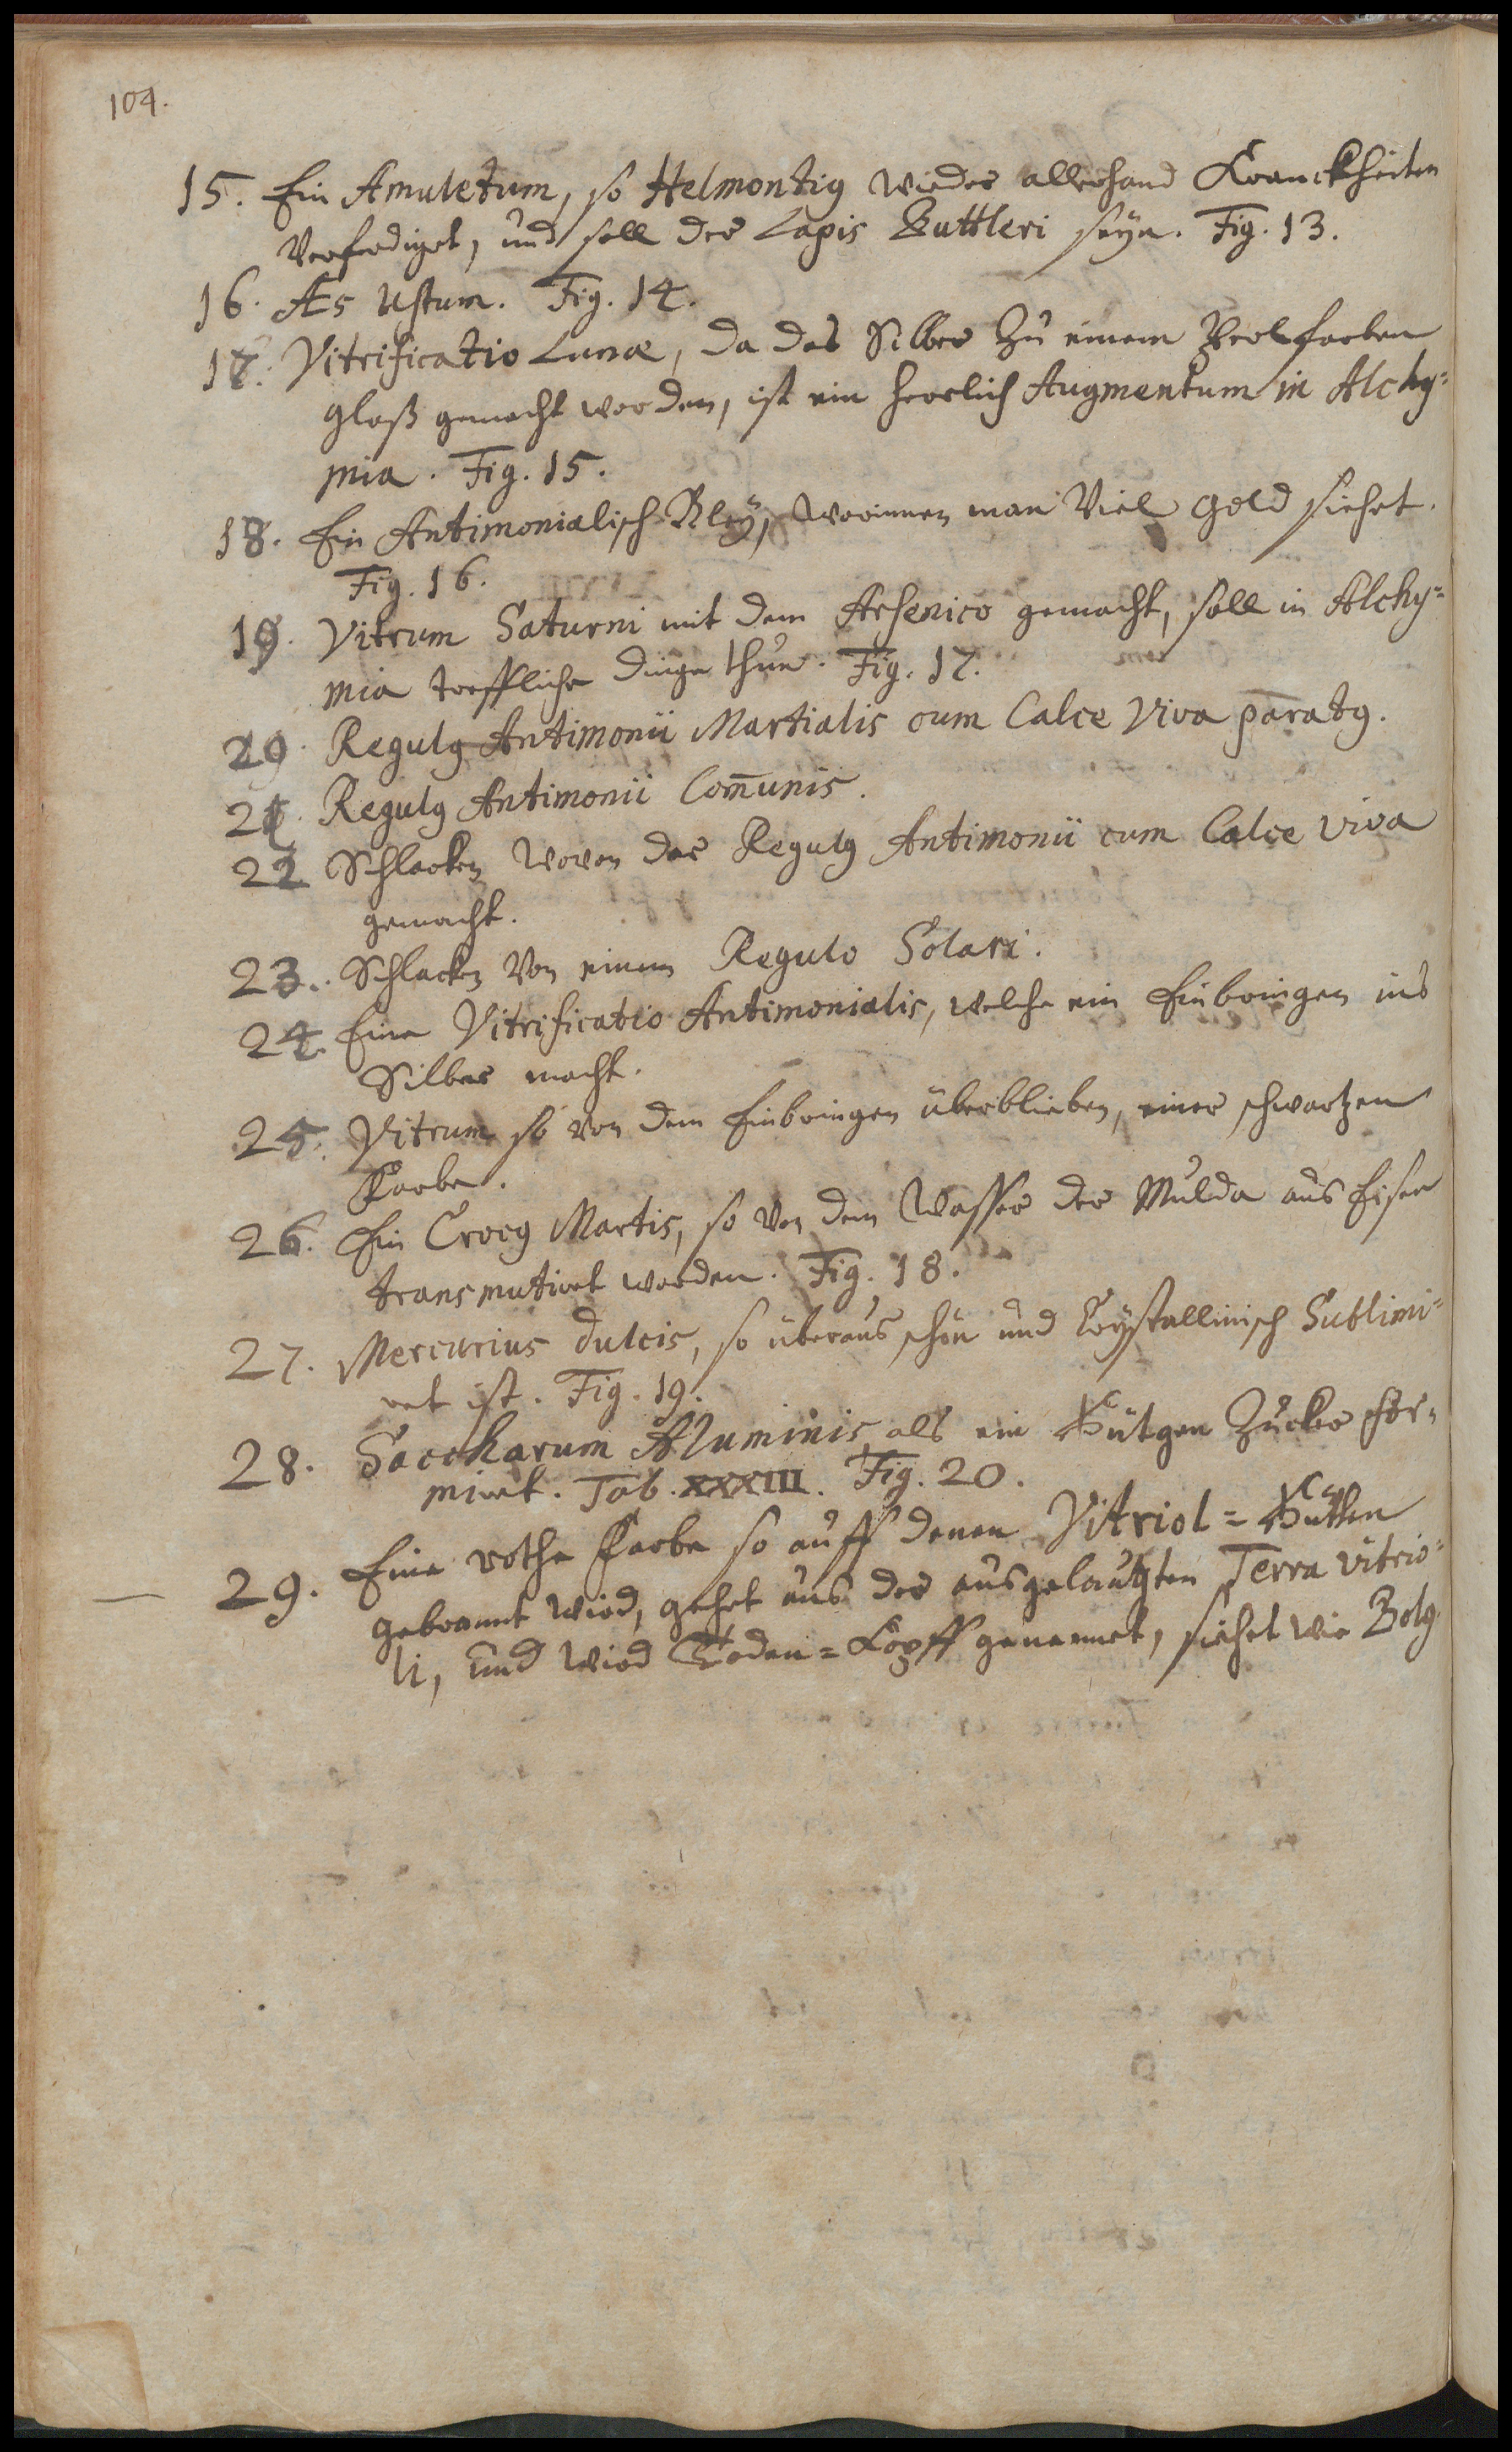 104.
15. Ein Amuletum, so Helmontig wieder allerhand Kranckheiten
Verfertiget, und soll der Lapis Buttleri seyn. Fig. 13.
16. Æs Ustum. Fig. 14.
17. Vitrificatio Lunæ, da das Silber zu einem Perlfarben
glaß gemacht worden, ist ein herrlich Augmentum in Alchy=
mia. Fig. 15.
18. Ein Antimonialisch Bleÿ, worinnen man Viel gold siehet.
Fig. 16.
19. Vitrum Saturni mit dem Arsenico gemacht, soll in Alchy=
mia treffliche dinge thun. Fig. 17.
20. Regulg Antimonii Martialis cum Calce Viva paratg.
21. Regulg Antimonii Com̄unis.
22 Schlacken wovon der Regulg Antimonii cum Calce viva
gemacht.
23. Schlacken Von einem Regulo Solari.
24. Eine Vitrificatio Antimonialis, welche ein Einbringen ins
Silber macht.
25. Vitrum so von dem Einbringen überblieben, einer schwartzen
Farbe.
26. Ein Crocg Martis, so von dem Wasser der Mulda aus Eisen
transmutiret worden. Fig. 18.
27. Mercurius dulcis, so überaus schön und Crÿstallinisch Sublimi=
ret ist. Fig. 19.
28. Saccharum Aluminis, als ein Hütgen Zucker for=
miret. Tab. XXXIII. Fig. 20.
29. Eine rothe Farbe so auff denen Vitriol=Hütten
gebrannt wird, gehet aus der ausgelaugten Terra vitrio=
li, und wird Toden=Kopff genennet, siehet wie Bolg